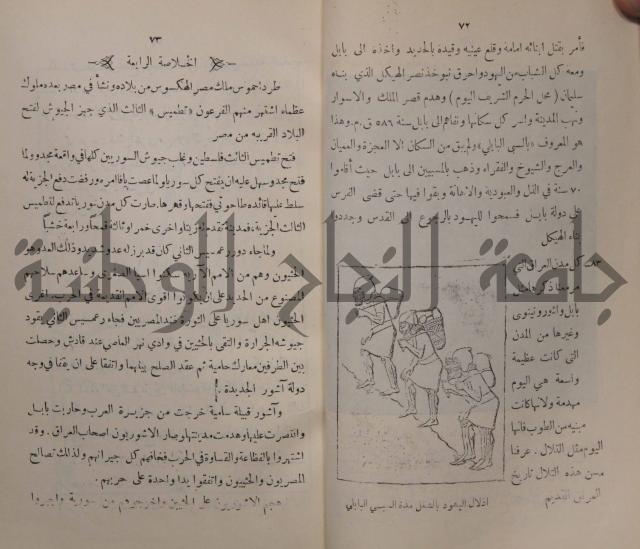 ٧٢
فأمر بقتل ابنائه امامه وقلع عينيه وقيده بالحديد واخذه الى بابل
ومعه كل الشباب من اليهود واحرق نبوخذ نصر الهيكل الذي بناه
سليمان ( محل الحرم الشريف اليوم ) وهدم قصر الملك والاسوار
ونهب المدينة واسر كل سكانها ونفاهم الى بابل سنة ٥٨٦ ق.م. وهذا
هو المعروف «بالسبي البابلي» ولم يبق من السكان الا العجزة والعميان
والعرج والشيوخ والفقراء وذهب بالمسبيين الى بابل حيث أقاموا
٧٠ سنة في الذل والعبودية والاهانة وبقوا فيها حتى قضى الفرس
على دولة بابل فسمحوا لليهود بالرجوع الى القدس وجددوا
بناء الهيكل
كل مدن العراق التي
مر معنا ذكرها مثل
بابل واشور ونينوى
وغيرها من المدن
التي كانت عظيمة
واسعة هي اليوم
مهدمة ولانها كانت
مبنيه من الطوب فانها
اليوم مثل التلال . عرفنا
من هذه التلال تاريخ
العراق القديم
اذلال اليهود بالشغل مدة السبي البابلي
٧٣
الخلاصة الرابعة
طرد احموس ملك مصر الهكسوس من بلاده ونشأ في مصر بعده ملوك
عظماء اشتهر منهم الفرعون « تطميس » الثالث الذي جهز الجيوش لفتح
البلاد القريبه من مصر
فتح تطميس الثالث فلسطين وتغلب جيوش السوريين كلها في واقعة مجدو ولما
فتح مجدو سهل عليه ان يفتح كل سوريا ولما عصت يافا امره ورفضت دفع الجزية له
سلط عليها قائده فتحها وقهرها. صارت كل مدن سوريا تدفع لتطميس
الثالث الجزية، فمدينة تقدم له زيتا واخرى خمرا وثالثة قمحا ورابعة خشبا
ولما جاء دور رعمسيس الثاني كان قد برز له عدو شديد وذلك العدو هو
الحثيون وهم من الامم الآرية سكنوا اسيا الصغرى وساعدهم سلاحهم
المصنوع من الحديد على ان يكونوا اقوى الامم القديمة في الحرب. اغرى
الحثيون اهل سوريا على الثورة ضد المصريين فجاء رعمسيس الثاني يقود
جيوشه الجرارة والتقى بالحثيين في وادي نهر العاصي عند قادش وحصلت
بين الطرفين معارك حامية ثم عقد الصلح بينهما واتفقا على ان يقفا في وجه
دولة آشور الجديدة .
وآشور قبيلة سامية خرجت من جزيرة العرب وحاربت بابل
وانتصرت عليها وهدمت مدينتها وصار الاشوريون اصحاب العراق. وقد
اشتهروا بالفظاعة والقساوة في الحرب فخافهم كل جيرانهم ولذلك تصالح
المصريون والحثيون واتفقوا يدا واحدة على حربهم.
هجم الاشوريون على الحثيين واخرجوهم من سورية
جامعة النجاح الوطنية